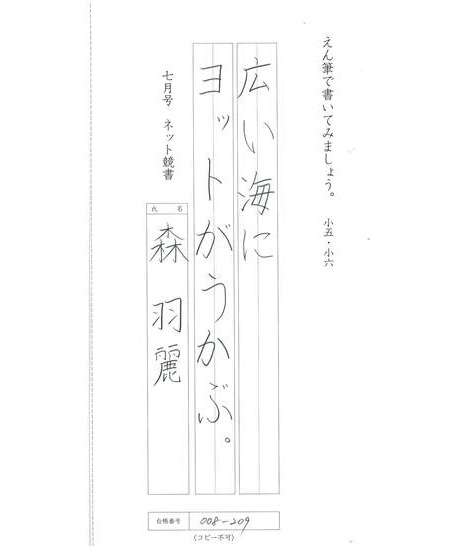 えん筆で書いてみましょう。 小五・小六
広い海に
ヨットがうかぶ。
七月号 ネット競書
氏名
森羽麗
台帳番号 008-209
(コピー不可)